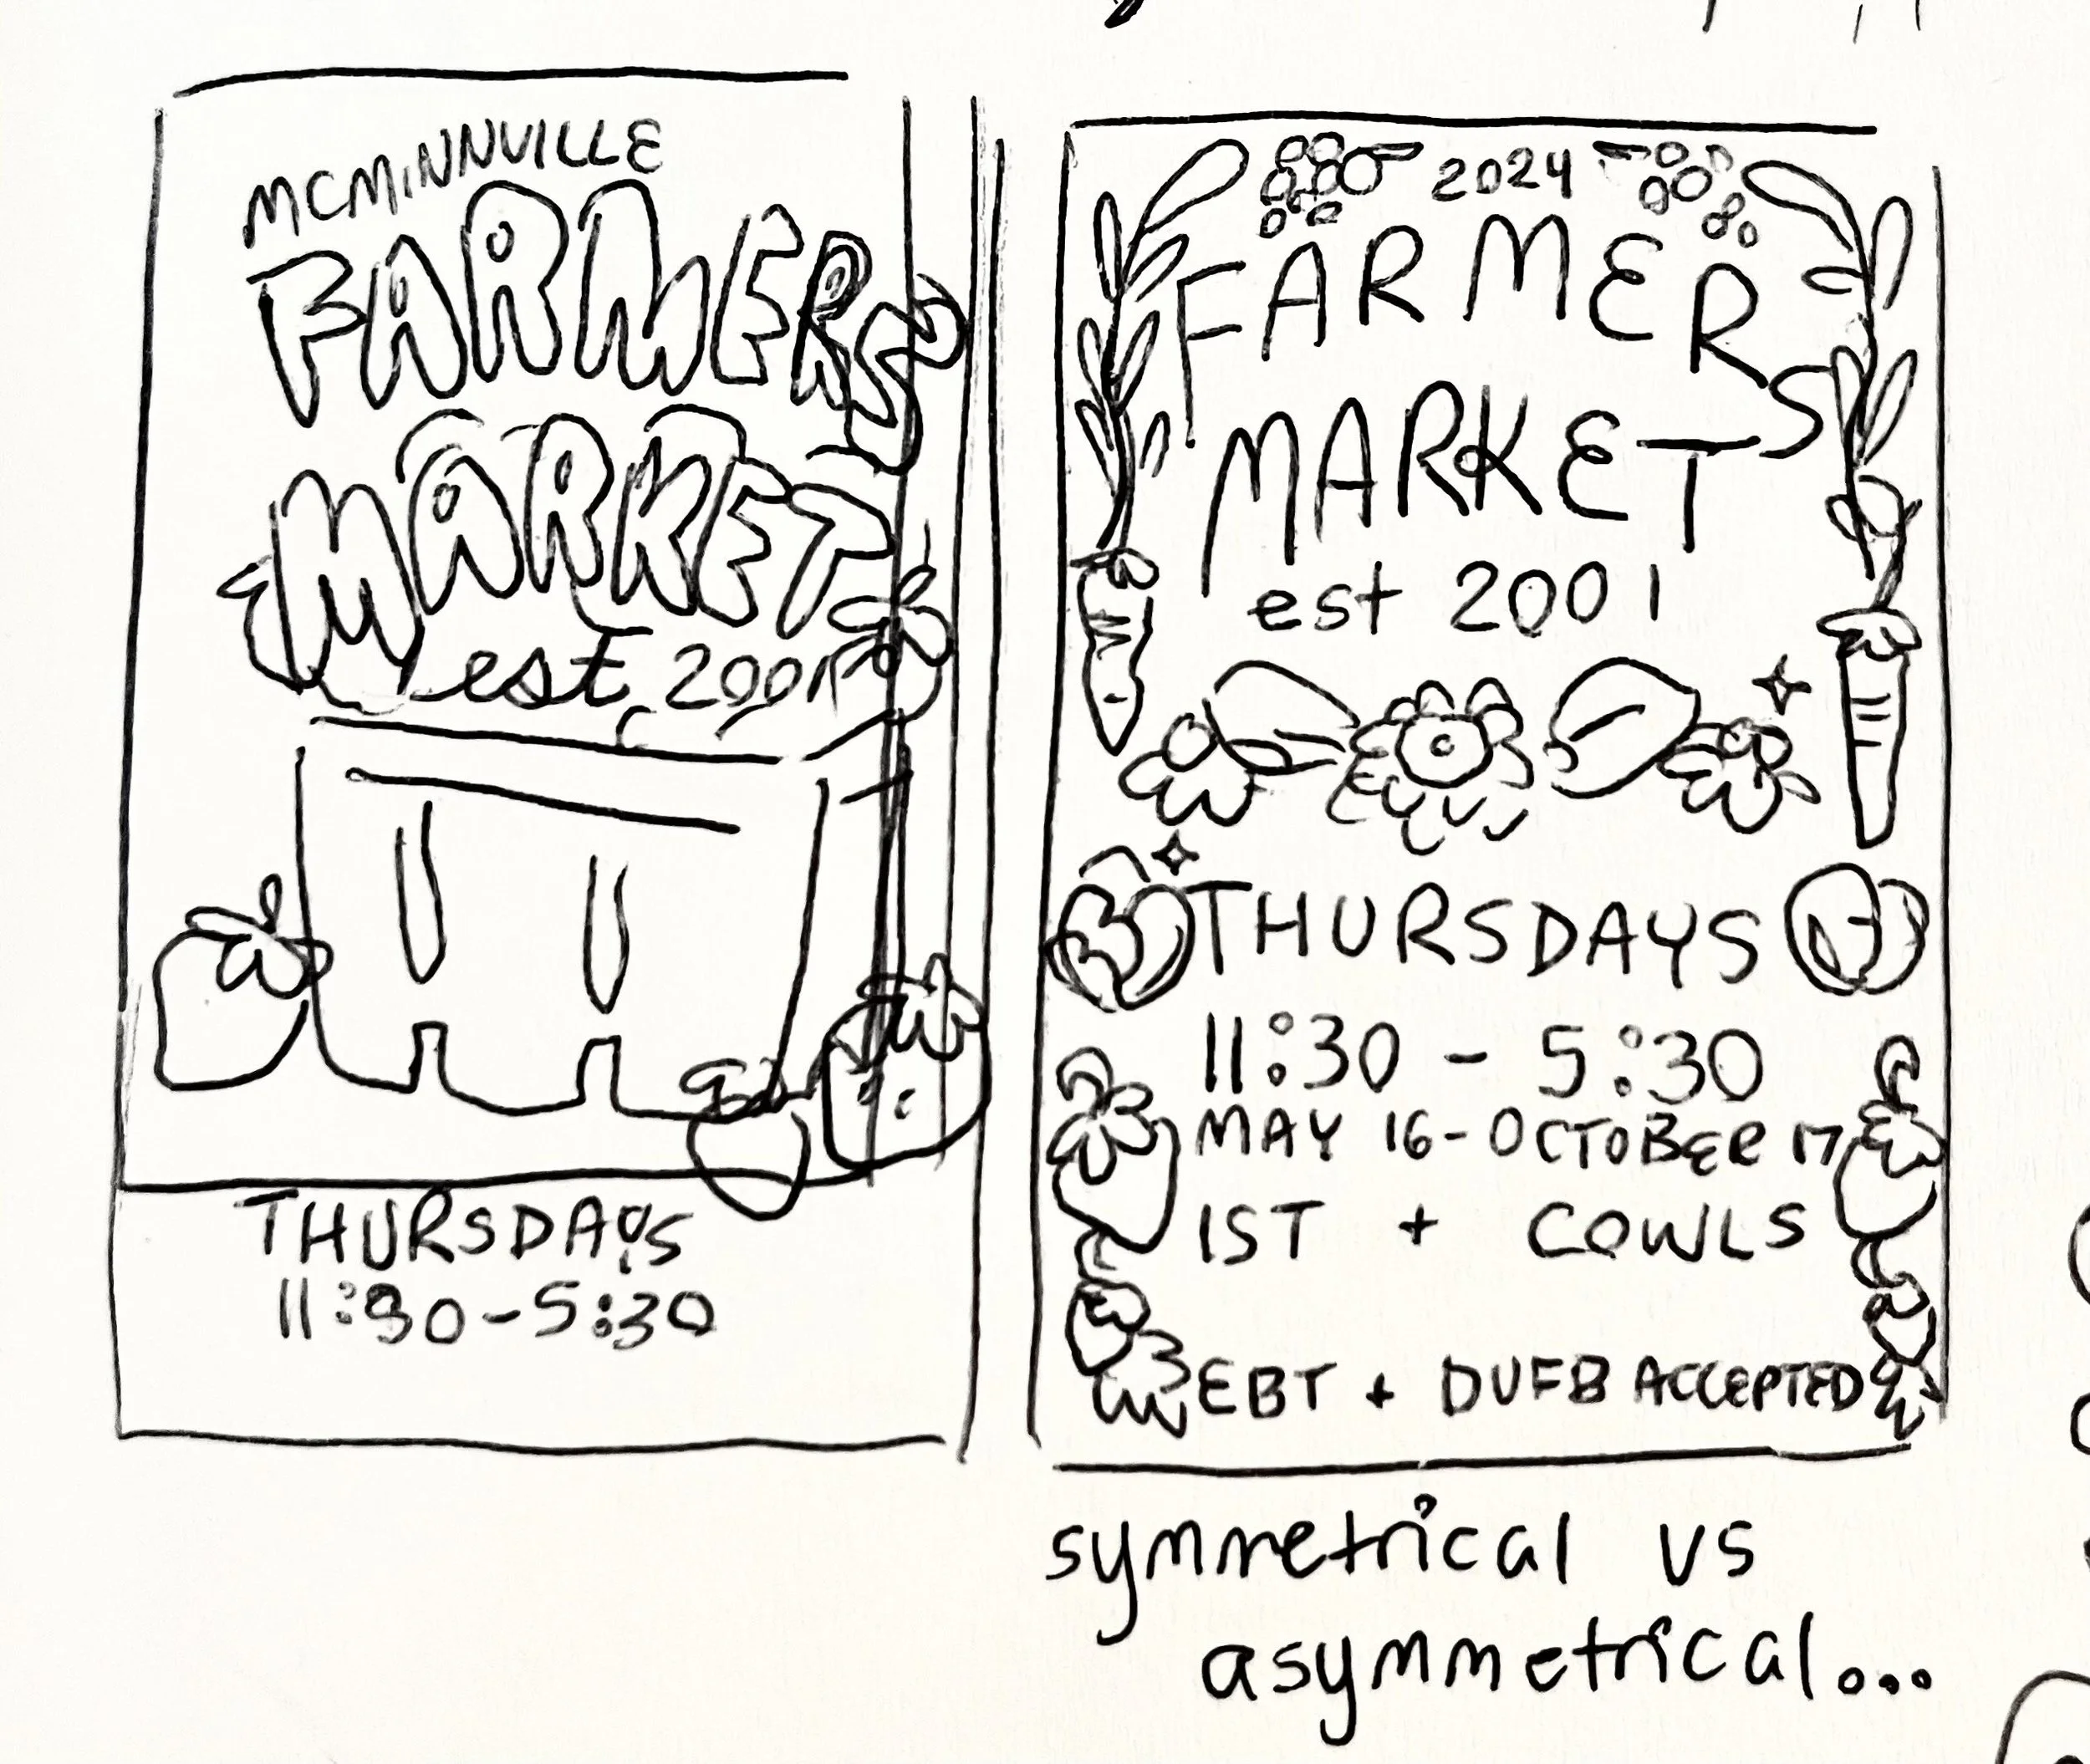 MCMINNVILLE
FARMERS
MARKET
est. 2001
THURSDAYS
11:30-5:30
2024
FARMERS
MARKET
est 2001
THURSDAYS
11:30 - 5:30
MAY 16-OCTOBER 17
1ST + COWLS
EBT + DUFB ACCEPTED
symmetrical vs
asymmetrical...